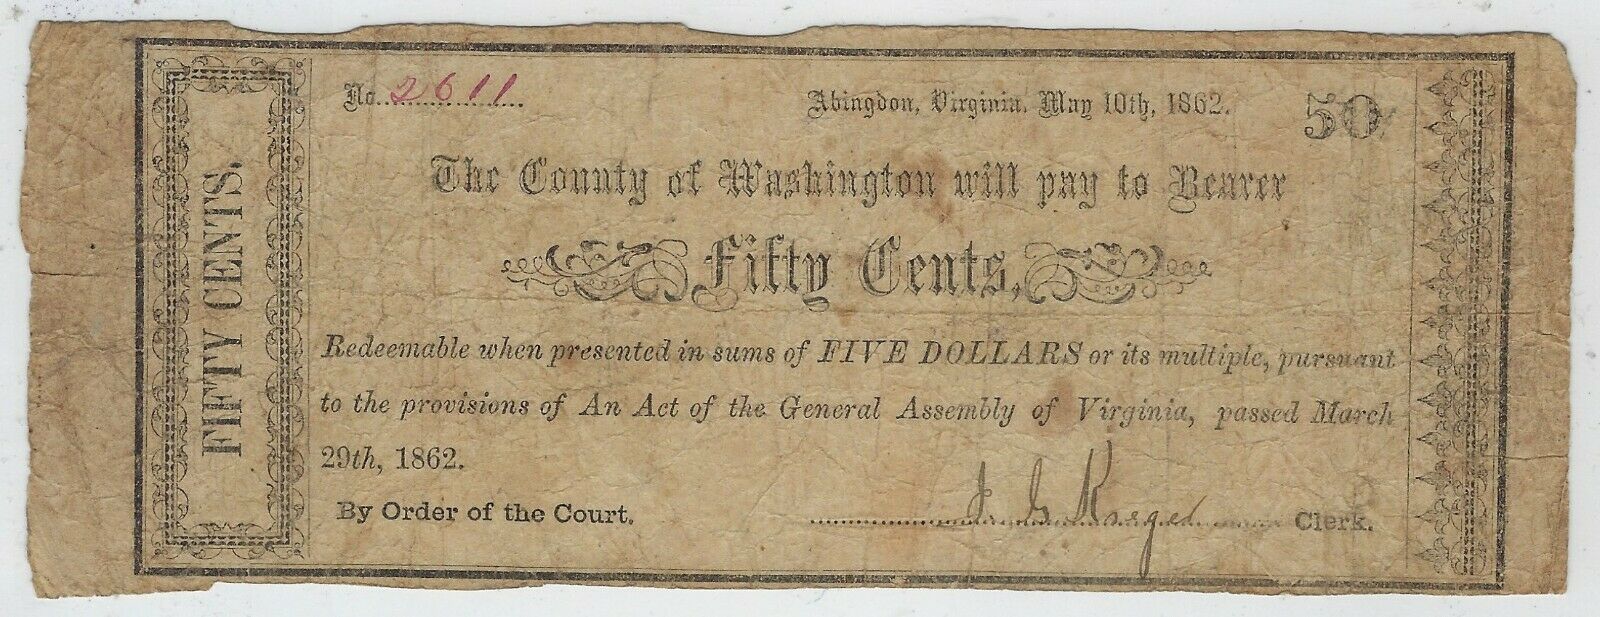 FIFTY CENTS.
No. 2611
Abingdon, Virginia. May 10th, 1862.
50
The County of Washington will pay to Bearer
Fifty Cents,
Redeemable when presented in sums of FIVE DOLLARS or its multiple, pursuant
to the provisions of An Act of the General Assembly of Virginia, passed March
29th, 1862.
By Order of the Court.
J G Kreger Clerk.